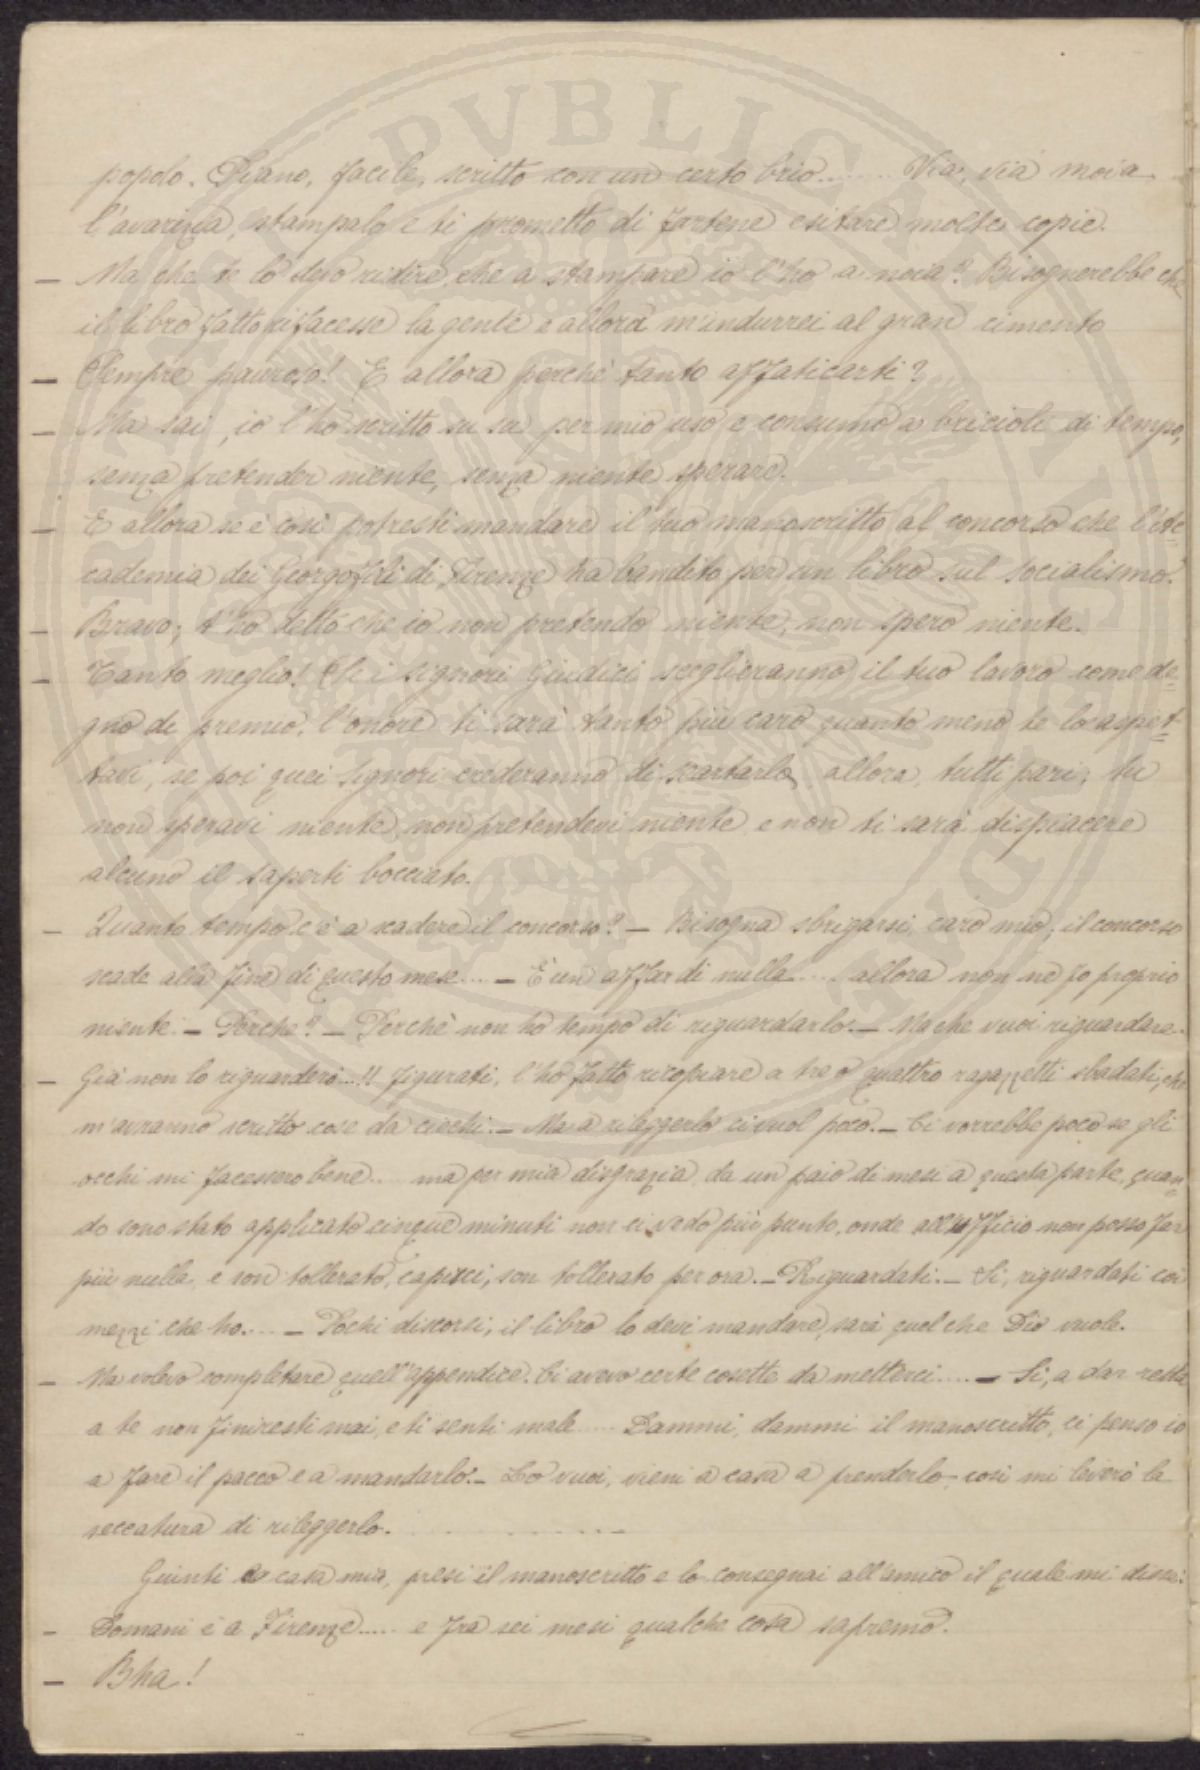 popolo. Piano, facile, scritto con un certo brio........ Via, via moia
l'avarizia, stampalo e ti prometto di fartene esitare molte copie.
— Ma che te lo devo ridire che a stampare io l'ho a noia? Bisognerebbe che
il libro fatto rifacesse la gente e allora m'indurrei al gran cimento
— Sempre pauroso! E allora perchè tanto affaticarti?
— Ma sai, io l'ho scritto su su per mio uso e consumo a bricioli di tempo,
senza pretender niente, senza niente sperare.
— E allora se è così potresti mandare il tuo manoscritto al concorso che l'Ac=
cademia dei Georgofili di Firenze ha bandito per un libro sul socialismo.
— Bravo; t'ho detto che io non pretendo niente, non spero niente.
— Tanto meglio! Se i signori Giudici sceglieranno il tuo lavoro come de=
gno di premio, l'onore ti sarà tanto più caro quanto meno te lo aspet=
tavi, se poi quei signori crederanno di scartarlo, allora, tutti pari; tu
non speravi niente, non pretendevi niente e non ti sarà dispiacere
alcuno il saperti bocciato.
— Quanto tempo c'è a scadere il concorso? — Bisogna sbrigarsi, caro mio; il concorso
scade alla fine di questo mese.... — È un affar di nulla..... allora non ne fo proprio
niente. — Perche? — Perchè non ho tempo di riguardarlo. — Ma che vuoi riguardare.
— Già non lo riguarderò...!! figurati, l'ho fatto ricopiare a tre o quattro ragazzetti sbadati, che
m'avranno scritto cose da ciechi. — Ma a rileggerlo ci vuol poco. — Ci vorrebbe poco se gli
occhi mi facessero bene... ma per mia disgrazia, da un paio di mesi a questa parte, quan=
do sono stato applicato cinque minuti non ci vedo più punto, onde all'ufficio non posso far
più nulla e son tollerato, capisci, son tollerato per ora. — Riguardati. — Si, riguardati coi
mezzi che ho.... — Pochi discorsi; il libro lo devi mandare, sarà quel che Dio vuole.
— Ma volevo completare quell'appendice. Ci avevo certe cosette da metterci..... — Si, a dar retta
a te non finiresti mai, e ti senti male..... Dammi, dammi il manoscritto, ci penso io
a fare il pacco e a mandarlo. — Lo vuoi, vieni a casa a prenderlo, così mi leverò la
seccatura di rileggerlo. . . . . . . . . —
Giunti a casa mia, presi il manoscritto e lo consegnai all'amico il quale mi disse:
— Domani è a Firenze..... e fra sei mesi qualche cosa sapremo.
— Bha!